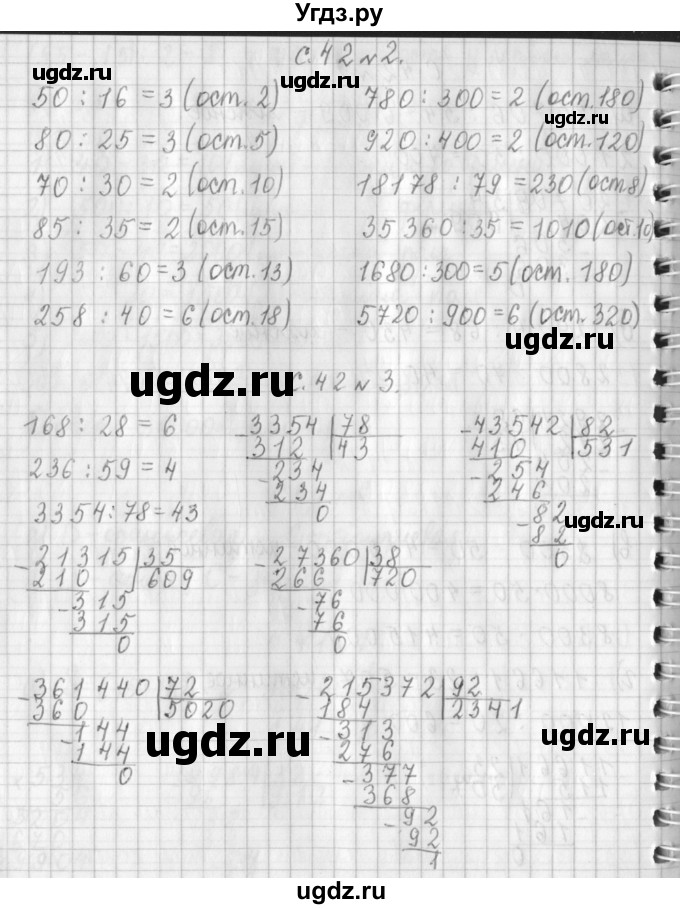 Угдз.ру
с. 42 №2.
50 : 16 = 3 (ост. 2)
780 : 300 = 2 (ост. 180)
80 : 25 = 3 (ост. 5)
920 : 400 = 2 (ост. 120)
70 : 30 = 2 (ост. 10)
18178 : 79 = 230 (ост 8)
85 : 35 = 2 (ост. 15)
35 360 : 35 = 1010 (ост. 10)
193 : 60 = 3 (ост. 13)
1680 : 300 = 5 (ост. 180)
258 : 40 = 6 (ост. 18)
5720 : 900 = 6 (ост. 320)
с. 42 № 3.
168 : 28 = 6
236 : 59 = 4
3354 : 78 = 43
- 3354 | 78
312 | 43
- 234
234
0
- 43542 | 82
410 | 531
- 254
246
- 82
82
0
- 21315 | 35
210 | 609
- 315
315
0
- 27360 | 38
266 | 720
- 76
76
0
- 361440 | 72
360 | 5020
- 144
144
0
- 215372 | 92
184 | 2341
- 313
276
- 377
368
- 92
92
1
ugdz.ru
ugdz.ru
ugdz.ru
ugdz.ru
ugdz.ru
ugdz.ru
ugdz.ru
ugdz.ru
ugdz.ru
ugdz.ru
ugdz.ru
ugdz.ru